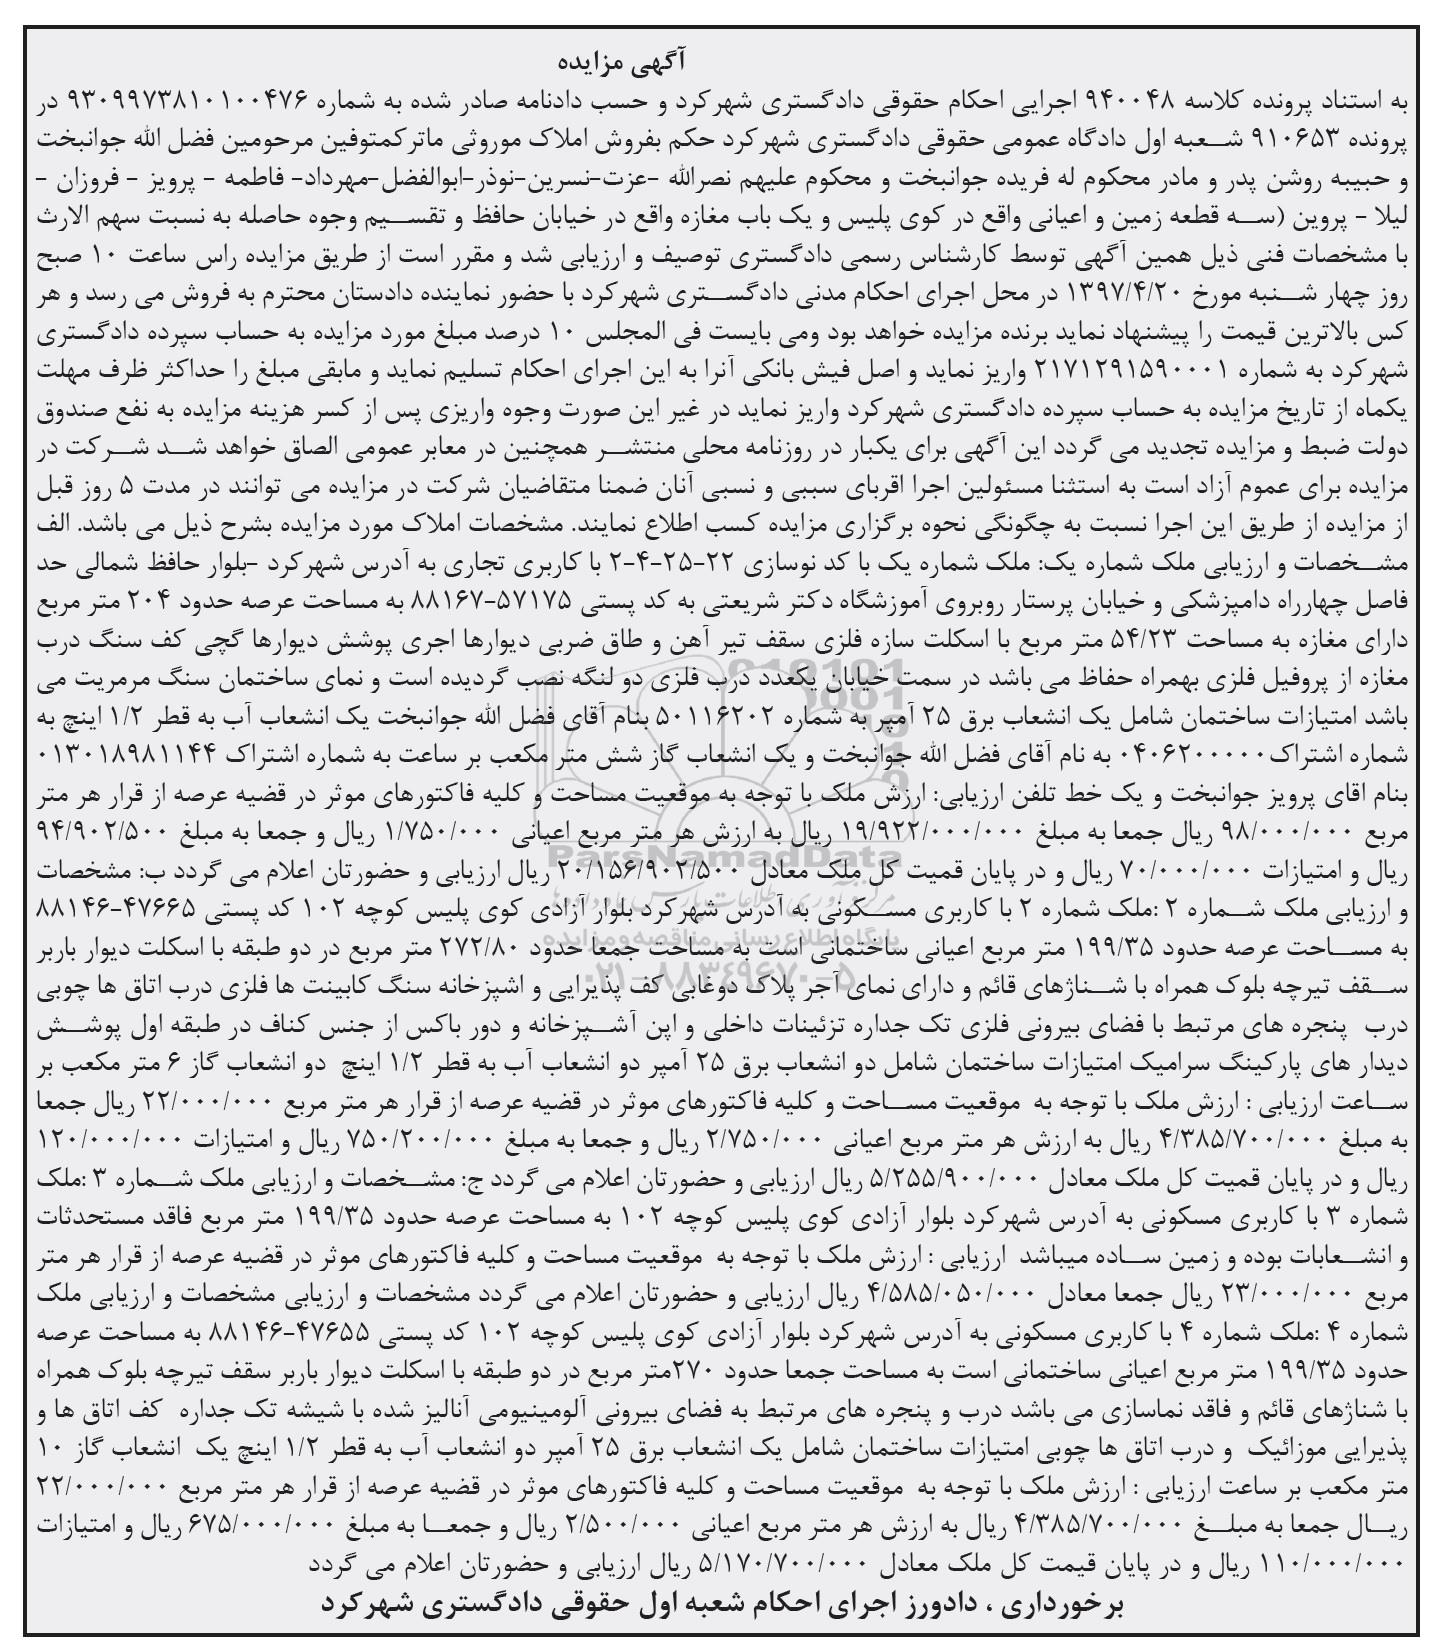 آگهی مزایده
به استناد پرونده کلاسه ۹۴۰۰۴۸ اجرایی احکام حقوقی دادگستری شهرکرد و حسب دادنامه صادر شده به شماره ۹۳۰۹۹۷۳۸۱۰۱۰۰۴۷۶ در
پرونده ۹۱۰۶۵۳ شعبه اول دادگاه عمومی حقوقی دادگستری شهرکرد حکم بفروش املاک موروثی ماترکمتوفین مرحومین فضل الله جوانبخت
و حبیبه روشن پدر و مادر محکوم له فریده جوانبخت و محکوم علیهم نصرالله -عزت-نسرین-نوذر-ابوالفضل-مهرداد- فاطمه - پرویز - فروزان -
لیلا - پروین (سه قطعه زمین و اعیانی واقع در کوی پلیس و یک باب مغازه واقع در خیابان حافظ و تقسیم وجوه حاصله به نسبت سهم الارث
با مشخصات فنی ذیل همین آگهی توسط کارشناس رسمی دادگستری توصیف و ارزیابی شد و مقرر است از طریق مزایده راس ساعت ۱۰ صبح
روز چهار شنبه مورخ ۱۳۹۷/۴/۲۰ در محل اجرای احکام مدنی دادگستری شهرکرد با حضور نماینده دادستان محترم به فروش می رسد و هر
کس بالاترین قیمت را پیشنهاد نماید برنده مزایده خواهد بود ومی بایست فی المجلس ۱۰ درصد مبلغ مورد مزایده به حساب سپرده دادگستری
شهرکرد به شماره ۲۱۷۱۲۹۱۵۹۰۰۰۱ واریز نماید و اصل فیش بانکی آنرا به این اجرای احکام تسلیم نماید و مابقی مبلغ را حداکثر ظرف مهلت
یکماه از تاریخ مزایده به حساب سپرده دادگستری شهرکرد واریز نماید در غیر این صورت وجوه واریزی پس از کسر هزینه مزایده به نفع صندوق
دولت ضبط و مزایده تجدید می گردد این آگهی برای یکبار در روزنامه محلی منتشر همچنین در معابر عمومی الصاق خواهد شد شرکت در
مزایده برای عموم آزاد است به استثنا مسئولین اجرا اقربای سببی و نسبی آنان ضمنا متقاضیان شرکت در مزایده می توانند در مدت ۵ روز قبل
از مزایده از طریق این اجرا نسبت به چگونگی نحوه برگزاری مزایده کسب اطلاع نمایند. مشخصات املاک مورد مزایده بشرح ذیل می باشد. الف
مشخصات و ارزیابی ملک شماره یک: ملک شماره یک با کد نوسازی ۲۲-۲۵-۴-۲ با کاربری تجاری به آدرس شهرکرد -بلوار حافظ شمالی حد
فاصل چهارراه دامپزشکی و خیابان پرستار روبروی آموزشگاه دکتر شریعتی به کد پستی ۵۷۱۷۵-۸۸۱۶۷ به مساحت عرصه حدود ۲۰۴ متر مربع
دارای مغازه به مساحت ۵۴/۲۳ متر مربع با اسکلت سازه فلزی سقف تیر آهن و طاق ضربی دیوارها اجری پوشش دیوارها گچی کف سنگ درب
مغازه از پروفیل فلزی بهمراه حفاظ می باشد در سمت خیابان یکعدد درب فلزی دو لنگه نصب گردیده است و نمای ساختمان سنگ مرمریت می
باشد امتیازات ساختمان شامل یک انشعاب برق ۲۵ آمپر به شماره ۵۰۱۱۶۲۰۲ بنام آقای فضل الله جوانبخت یک انشعاب آب به قطر ۱/۲ اینچ به
شماره اشتراک۰۴۰۶۲۰۰۰۰۰ به نام آقای فضل الله جوانبخت و یک انشعاب گاز شش متر مکعب بر ساعت به شماره اشتراک ۰۱۳۰۱۸۹۸۱۱۴۴
بنام اقای پرویز جوانبخت و یک خط تلفن ارزیابی: ارزش ملک با توجه به موقعیت مساحت و کلیه فاکتورهای موثر در قضیه عرصه از قرار هر متر
مربع ۹۸/۰۰۰/۰۰۰ ریال جمعا به مبلغ ۱۹/۹۲۲/۰۰۰/۰۰۰ ریال به ارزش هر متر مربع اعیانی ۱/۷۵۰/۰۰۰ ریال و جمعا به مبلغ ۹۴/۹۰۲/۵۰۰
ریال و امتیازات ۷۰/۰۰۰/۰۰۰ ریال و در پایان قمیت کل ملک معادل ۲۰/۱۵۶/۹۰۲/۵۰۰ ریال ارزیابی و حضورتان اعلام می گردد ب: مشخصات
و ارزیابی ملک شماره ۲ :ملک شماره ۲ با کاربری مسکونی به آدرس شهرکرد بلوار آزادی کوی پلیس کوچه ۱۰۲ کد پستی ۴۷۶۶۵-۸۸۱۴۶
به مساحت عرصه حدود ۱۹۹/۳۵ متر مربع اعیانی ساختمانی است به مساحت جمعا حدود ۲۷۲/۸۰ متر مربع در دو طبقه با اسکلت دیوار باربر
سقف تیرچه بلوک همراه با شناژهای قائم و دارای نمای آجر پلاک دوغابی کف پذیرایی و اشپزخانه سنگ کابینت ها فلزی درب اتاق ها چوبی
درب پنجره های مرتبط با فضای بیرونی فلزی تک جداره تزئینات داخلی و اپن آشپزخانه و دور باکس از جنس کناف در طبقه اول پوشش
دیدار های پارکینگ سرامیک امتیازات ساختمان شامل دو انشعاب برق ۲۵ آمپر دو انشعاب آب به قطر ۱/۲ اینچ دو انشعاب گاز ۶ متر مکعب بر
ساعت ارزیابی : ارزش ملک با توجه به موقعیت مساحت و کلیه فاکتورهای موثر در قضیه عرصه از قرار هر متر مربع ۲۲/۰۰۰/۰۰۰ ریال جمعا
به مبلغ ۴/۳۸۵/۷۰۰/۰۰۰ ریال به ارزش هر متر مربع اعیانی ۲/۷۵۰/۰۰۰ ریال و جمعا به مبلغ ۷۵۰/۲۰۰/۰۰۰ ریال و امتیازات ۱۲۰/۰۰۰/۰۰۰
ریال و در پایان قمیت کل ملک معادل ۵/۲۵۵/۹۰۰/۰۰۰ ریال ارزیابی و حضورتان اعلام می گردد ج: مشخصات و ارزیابی ملک شماره ۳ :ملک
شماره ۳ با کاربری مسکونی به آدرس شهرکرد بلوار آزادی کوی پلیس کوچه ۱۰۲ به مساحت عرصه حدود ۱۹۹/۳۵ متر مربع فاقد مستحدثات
و انشعابات بوده و زمین ساده میباشد ارزیابی : ارزش ملک با توجه به موقعیت مساحت و کلیه فاکتورهای موثر در قضیه عرصه از قرار هر متر
مربع ۲۳/۰۰۰/۰۰۰ ریال جمعا معادل ۴/۵۸۵/۰۵۰/۰۰۰ ریال ارزیابی و حضورتان اعلام می گردد مشخصات و ارزیابی مشخصات و ارزیابی ملک
شماره ۴ :ملک شماره ۴ با کاربری مسکونی به آدرس شهرکرد بلوار آزادی کوی پلیس کوچه ۱۰۲ کد پستی ۴۷۶۵۵-۸۸۱۴۶ به مساحت عرصه
حدود ۱۹۹/۳۵ متر مربع اعیانی ساختمانی است به مساحت جمعا حدود ۲۷۰متر مربع در دو طبقه با اسکلت دیوار باربر سقف تیرچه بلوک همراه
با شناژهای قائم و فاقد نماسازی می باشد درب و پنجره های مرتبط به فضای بیرونی آلومینیومی آنالیز شده با شیشه تک جداره کف اتاق ها و
پذیرایی موزائیک و درب اتاق ها چوبی امتیازات ساختمان شامل یک انشعاب برق ۲۵ آمپر دو انشعاب آب به قطر ۱/۲ اینچ یک انشعاب گاز ۱۰
متر مکعب بر ساعت ارزیابی : ارزش ملک با توجه به موقعیت مساحت و کلیه فاکتورهای موثر در قضیه عرصه از قرار هر متر مربع ۲۲/۰۰۰/۰۰۰
ریال جمعا به مبلغ ۴/۳۸۵/۷۰۰/۰۰۰ ریال به ارزش هر متر مربع اعیانی ۲/۵۰۰/۰۰۰ ریال و جمعا به مبلغ ۶۷۵/۰۰۰/۰۰۰ ریال و امتیازات
۱۱۰/۰۰۰/۰۰۰ ریال و در پایان قیمت کل ملک معادل ۵/۱۷۰/۷۰۰/۰۰۰ ریال ارزیابی و حضورتان اعلام می گردد
برخورداری ، دادورز اجرای احکام شعبه اول حقوقی دادگستری شهرکرد
ParsNamadData
پایگاه اطلاع رسانی مناقصه و مزایده
۰۲۱-۸۸۳۴۹۶۷۰-۵